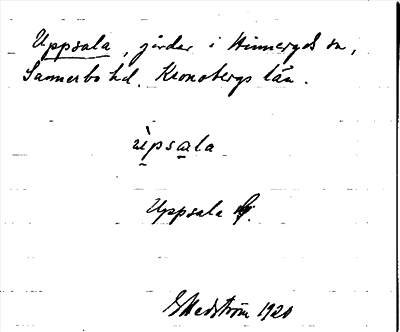 Uppsala, gårdar i Hinneryds sn,
Sunnerbo hd. Kronobergs län.
ùpsala
Uppsala
Hedström 1920